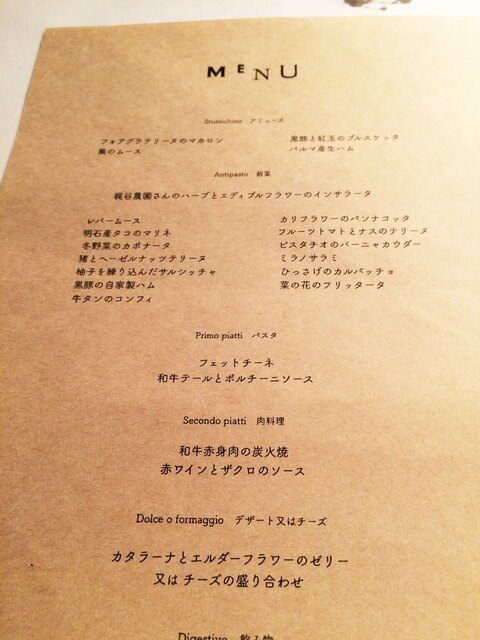 MENU
Stuzzichino アミューズ
フォアグラテリーヌのマカロン 黒豚と紅玉のブルスケッタ
蕪のムース パルマ産生ハム
Antipasto 前菜
梶谷農園さんのハーブとエディブルフラワーのインサラータ
レバームース カリフラワーのパンナコッタ
明石産タコのマリネ フルーツトマトとナスのテリーヌ
冬野菜のカポナータ ピスタチオのバーニャカウダー
猪とヘーゼルナッツテリーヌ ミラノサラミ
柚子を練り込んだサルシッチャ ひっさげのカルパッチョ
黒豚の自家製ハム 菜の花のフリッタータ
牛タンのコンフィ
Primo piatti パスタ
フェットチーネ
和牛テールとポルチーニソース
Secondo piatti 肉料理
和牛赤身肉の炭火焼
赤ワインとザクロのソース
Dolce o formaggio デザート又はチーズ
カタラーナとエルダーフラワーのゼリー
又は チーズの盛り合わせ
Digestivo 飲み物